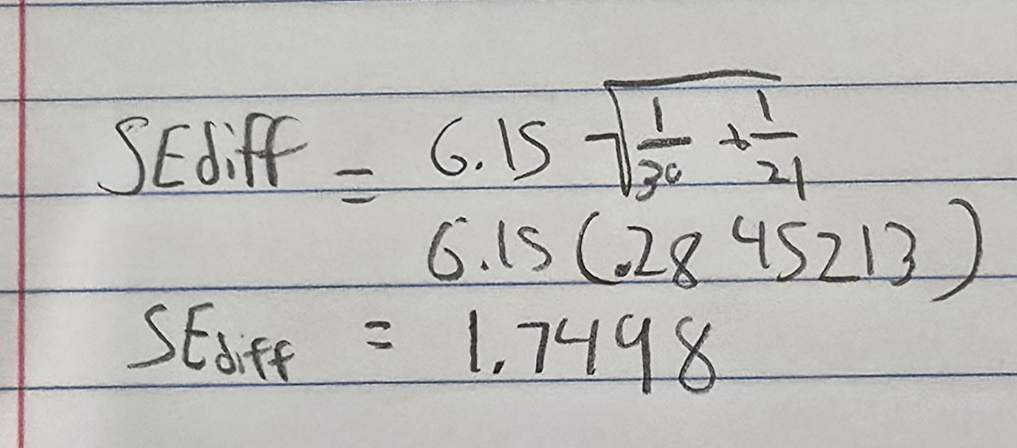 SEdiff = 6.15 √(1/30 + 1/21)
6.15 (.2845213)
SEdiff = 1.7498